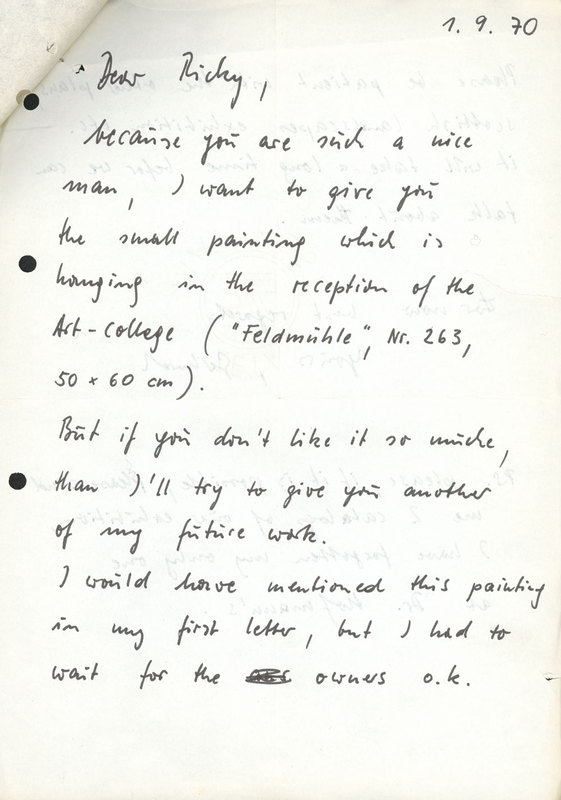 1. 9. 70
Dear Ricky,
because you are such a nice
man, I want to give you
the small painting which is
hanging in the reception of the
Art-College ("Feldmühle", Nr. 263,
50 × 60 cm).
But if you don't like it so much,
than I'll try to give you another
of my future work.
I would have mentioned this painting
in my first letter, but I had to
wait for the owners o.k.